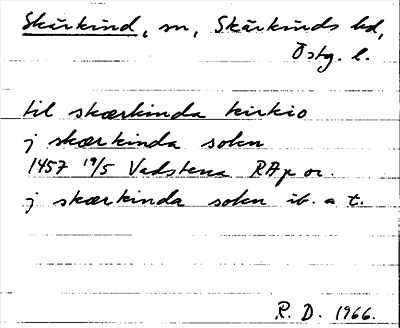 Skärkind, sn, Skärkinds hd,
Östg. l.
til skærkinda kirkio
j skærkinda sokn
1457 19/5 Vadstena RAp or.
j skærkinda sokn ib. a t.
R. D. 1966.